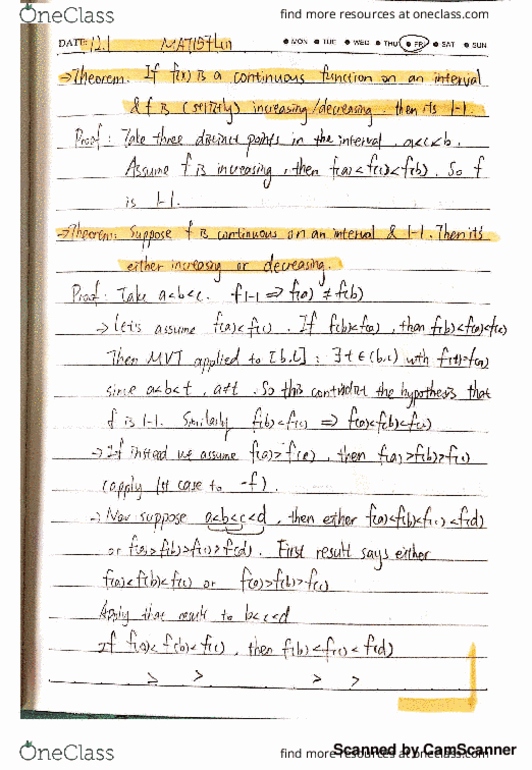 OneClass find more resources at oneclass.com
DATE 12.1 MAT157 Lin MON TUE WED THU FRI SAT SUN
→Theorem: If f(x) is a continuous function on an interval
& f is (strictly) increasing/decreasing. then its 1-1.
Proof: Take three distinct points in the interval, a<c<b.
Assume f is increasing, then f(a)<f(c)<f(b). So f
is 1-1.
→Theorem: Suppose f is continuous on an interval & 1-1. Then it's
either increasing or decreasing.
Proof: Take a<b<c. f 1-1 ⇒ f(a) ≠ f(b)
→ Let's assume f(a)<f(c). If f(b)<f(a), then f(b)<f(a)<f(c)
Then MVT applied to [b,c]: ∃t∈(b,c) with f(t)=f(a)
since a<b<t, a≠t. So this contradict the hypothesis that
f is 1-1. Similarly f(b)<f(c) ⇒ f(a)<f(b)<f(c)
→ If instead we assume f(a)>f(c), then f(a)>f(b)>f(c)
(apply 1st case to -f).
→ Now suppose a<b<c<d, then either f(a)<f(b)<f(c)<f(d)
or f(a)>f(b)>f(c)>f(d). First result says either
f(a)<f(b)<f(c) or f(a)>f(b)>f(c)
Apply that result to b<c<d
If f(a)<f(b)<f(c), then f(b)<f(c)<f(d)
> > > >
OneClass find more resources at oneclass.com
Scanned by CamScanner